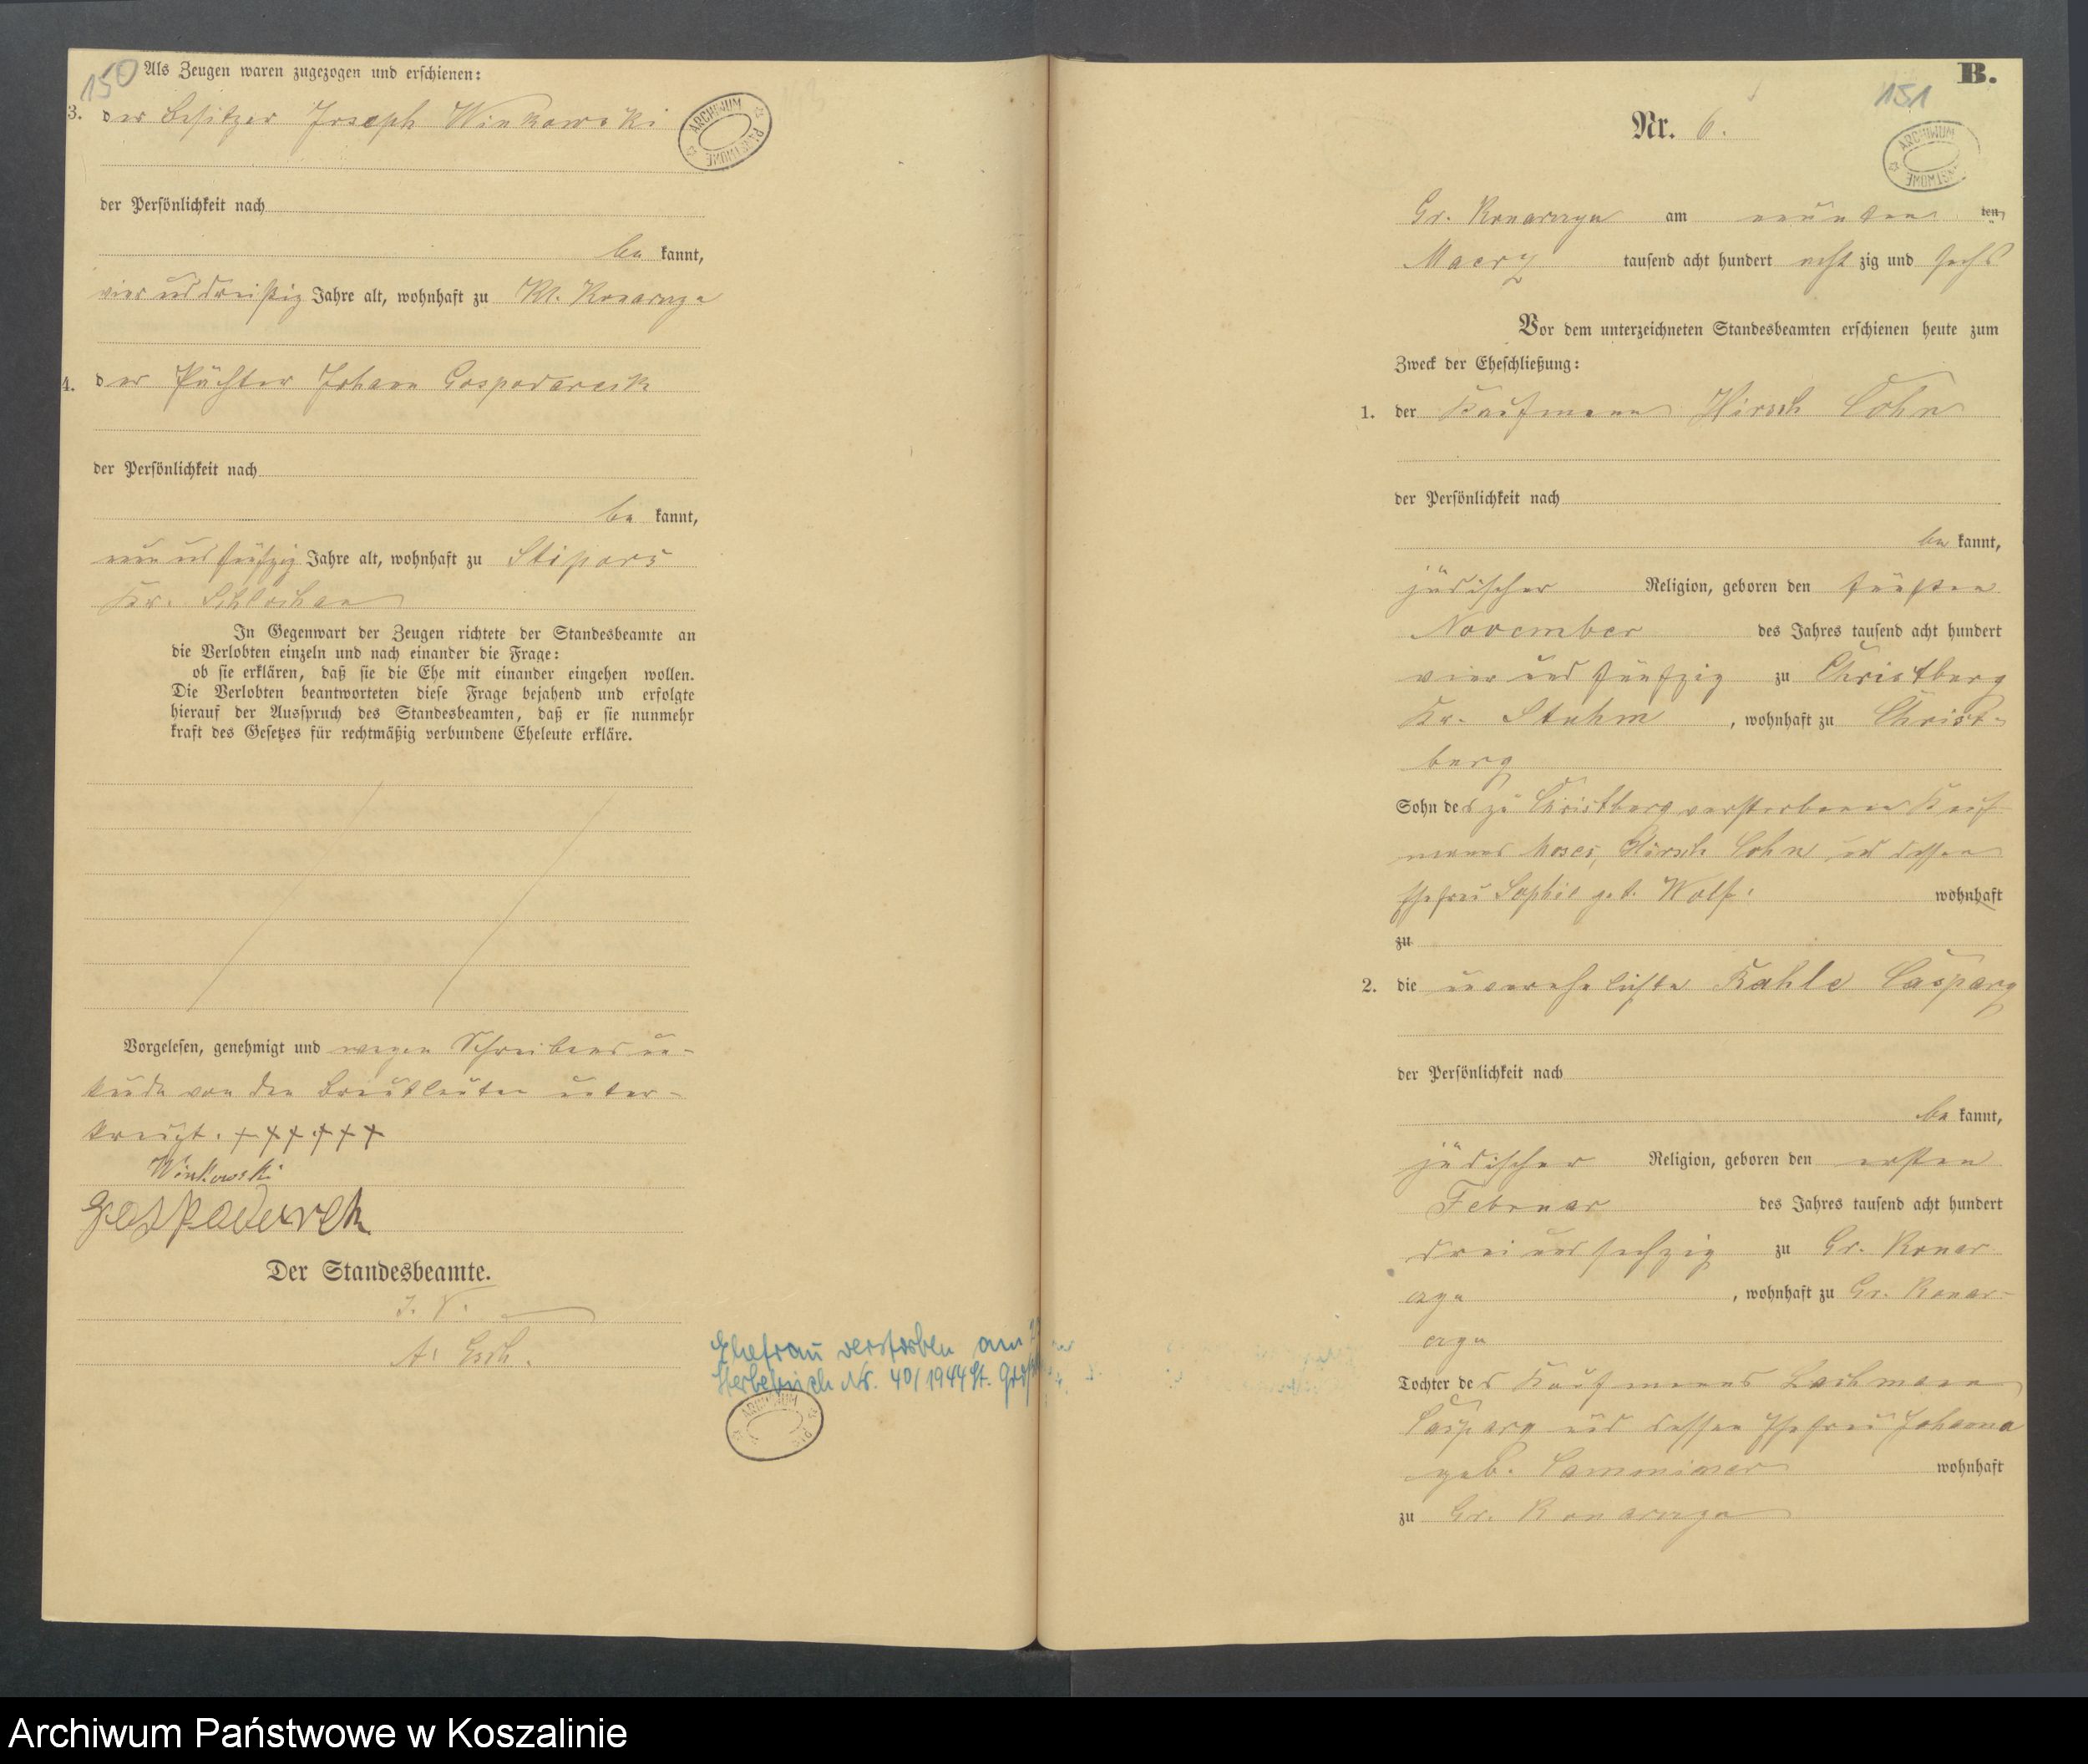 150
Als Zeugen waren zugezogen und erschienen:
3. der Besitzer Joseph Winkowski
ARCHIWUM PAŃSTWOWE
der Persönlichkeit nach
be kannt,
vier und dreißig Jahre alt, wohnhaft zu Kl. Konarczyn
4. der Pächter Johann Gospodarek
der Persönlichkeit nach
be kannt,
neun und fünfzig Jahre alt, wohnhaft zu
Kr. Schlochau
In Gegenwart der Zeugen richtete der Standesbeamte an
die Verlobten einzeln und nach einander die Frage:
ob sie erklären, daß sie die Ehe mit einander eingehen wollen.
Die Verlobten beantworteten diese Frage bejahend und erfolgte
hierauf der Ausspruch des Standesbeamten, daß er sie nunmehr
kraft des Gesetzes für rechtmäßig verbundene Eheleute erkläre.
Vorgelesen, genehmigt und wegen Schreibensun-
kunde von den Brautleuten unter-
kreuzt. +++ +++
Winkowski
Gospodarek
Der Standesbeamte.
I. V.
A.
Ehefrau verstorben am
Sterbebuch Nr. 40/1944 St.
ARCHIWUM
B.
151
Nr. 6.
ARCHIWUM PAŃSTWOWE
Gr. Konarczyn am neunten ten
Maerz tausend acht hundert acht zig und sechs
Vor dem unterzeichneten Standesbeamten erschienen heute zum
Zweck der Eheschließung:
1. der Kaufmann Hirsch Cohn
der Persönlichkeit nach
be kannt,
jüdischer Religion, geboren den fünften
November des Jahres tausend acht hundert
vier und fünfzig zu Christburg
Kr. Stuhm, wohnhaft zu Christ-
burg
Sohn des zu Christburg verstorbenen Kauf-
manns Moses Hirsch Cohn und dessen
Ehefrau Sophie geb. Wolf. wohnhaft
zu
2. die unverehelichte Kahle Caspary
der Persönlichkeit nach
be kannt,
jüdischer Religion, geboren den ersten
Februar des Jahres tausend acht hundert
drei und sechzig zu Gr. Konar
czyn, wohnhaft zu Gr. Konar-
czyn
Tochter des Kaufmanns Lachmann
Caspary und dessen Ehefrau Johanna
geb. wohnhaft
zu Gr. Konarczyn
Archiwum Państwowe w Koszalinie